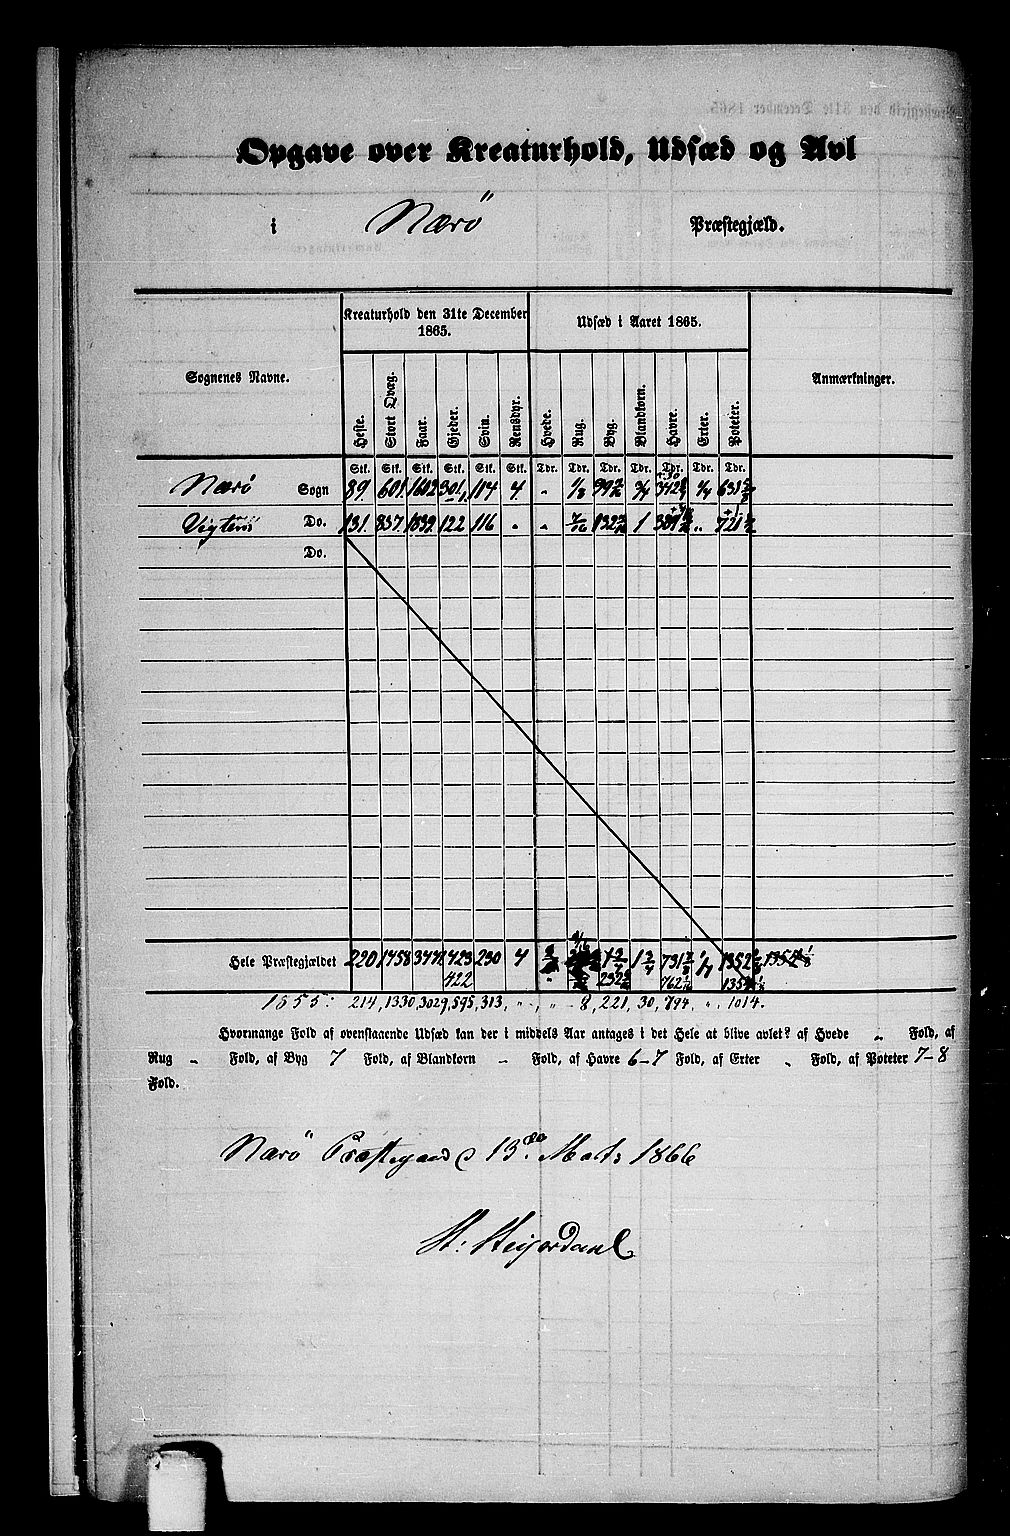 Opgave over Kreaturhold, Udsæd og Avl
i Nærö Præstegjæld.
Kreaturhold den 31te December 1865.
Udsæd i Aaret 1865.
Sognenes Navne.
Anmærkninger.
Heste. Stort Qvæg. Faar. Gjeder. Svin. Rensdyr. Hvede. Rug. Byg. Blandkorn. Havre. Erter. Poteter.
Stk. Stk. Stk. Stk. Stk. Stk. Tdr. Tdr. Tdr. Tdr. Tdr. Tdr. Tdr.
Nærö Sogn 89. 601. 1602 301. 114 4. „ 1/8 3/4 1/4 631 5/8
Do. 131. 837. 1839. 122 116 „ „ 7/16 1 „ 721
Do.
Hele Præstegjældet 220 1458 423 230 4 731 1352
422 232 762
1855: 214, 1330, 3029, 595, 313, „ „ 8, 221, 30, 894, „ 1014.
Hvormange Fold af ovenstaaende Udsæd kan der i middels Aar antages i det Hele at blive avlet? af Hvede „ Fold, af
Rug „ Fold, af Byg 7 Fold, af Blandkorn „ Fold, af Havre 6-7 Fold, af Erter „ Fold, af Poteter 7-8
Fold.
Nærö Præstegaard 13de Marts 1866